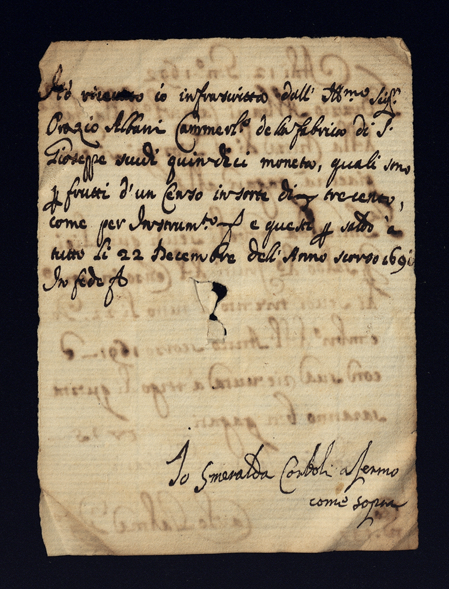 Hò riceuuto io infrascritta dall' Ill.mo Sig.r
Orazio Albani Cammerl.o della fabrica di S.
Gioseppe scudi quindeci moneta, quali sono
p frutti d'un Censo in sorte di trecento,
come per Instrum.to e questi p saldo à
tutto li 22 Decembre dell' Anno scorso 1691
In fede
Io Smeralda Corboli afermo
come sopra